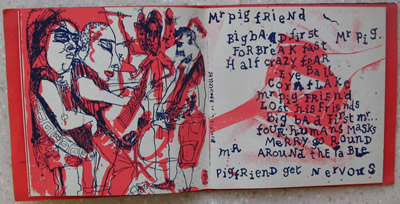 Mr pig friend
Big bad first Mr Pig.
For Breakfast
Half crazy fear
Eye Ball
Cornflake
mr pig Friend
Lost his Friends
Big bad First mr...
four humans masks
Merry go Round
mr Around the table
Pigfriend get Nervous